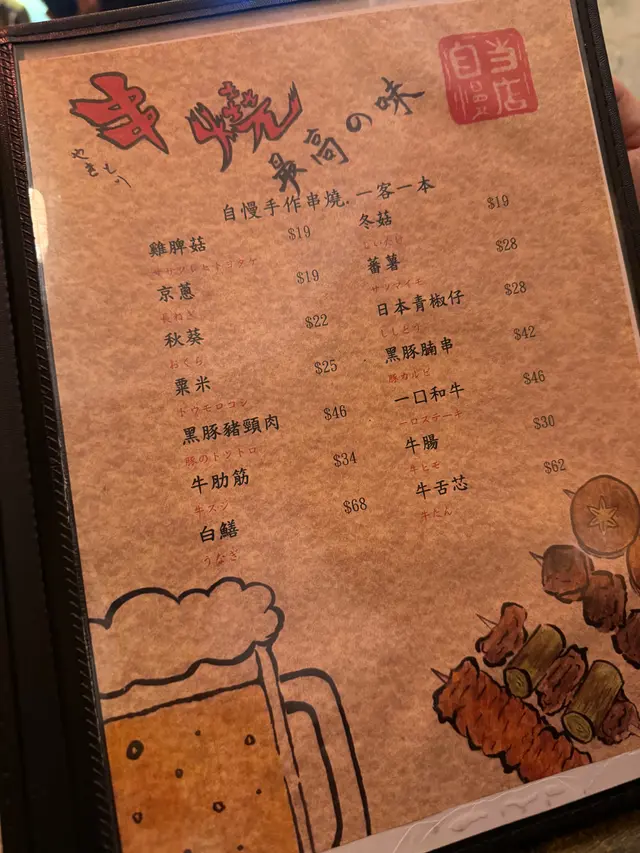 串燒
やきとり
最高の味
当店自慢
自慢手作串燒.一客一本
雞脾菇 $19
京蔥 $19
長ねぎ
秋葵 $22
おくら
粟米 $25
トウモロコシ
黑豚豬頸肉 $46
豚のトントロ
牛肋筋 $34
牛スジ
白鱔 $68
うなぎ
冬菇 $19
しいたけ
蕃薯 $28
サツマイモ
日本青椒仔 $28
ししとう
黑豚腩串 $42
豚カルビ
一口和牛 $46
一口ステーキ
牛腸 $30
牛ヒモ
牛舌芯 $62
牛たん